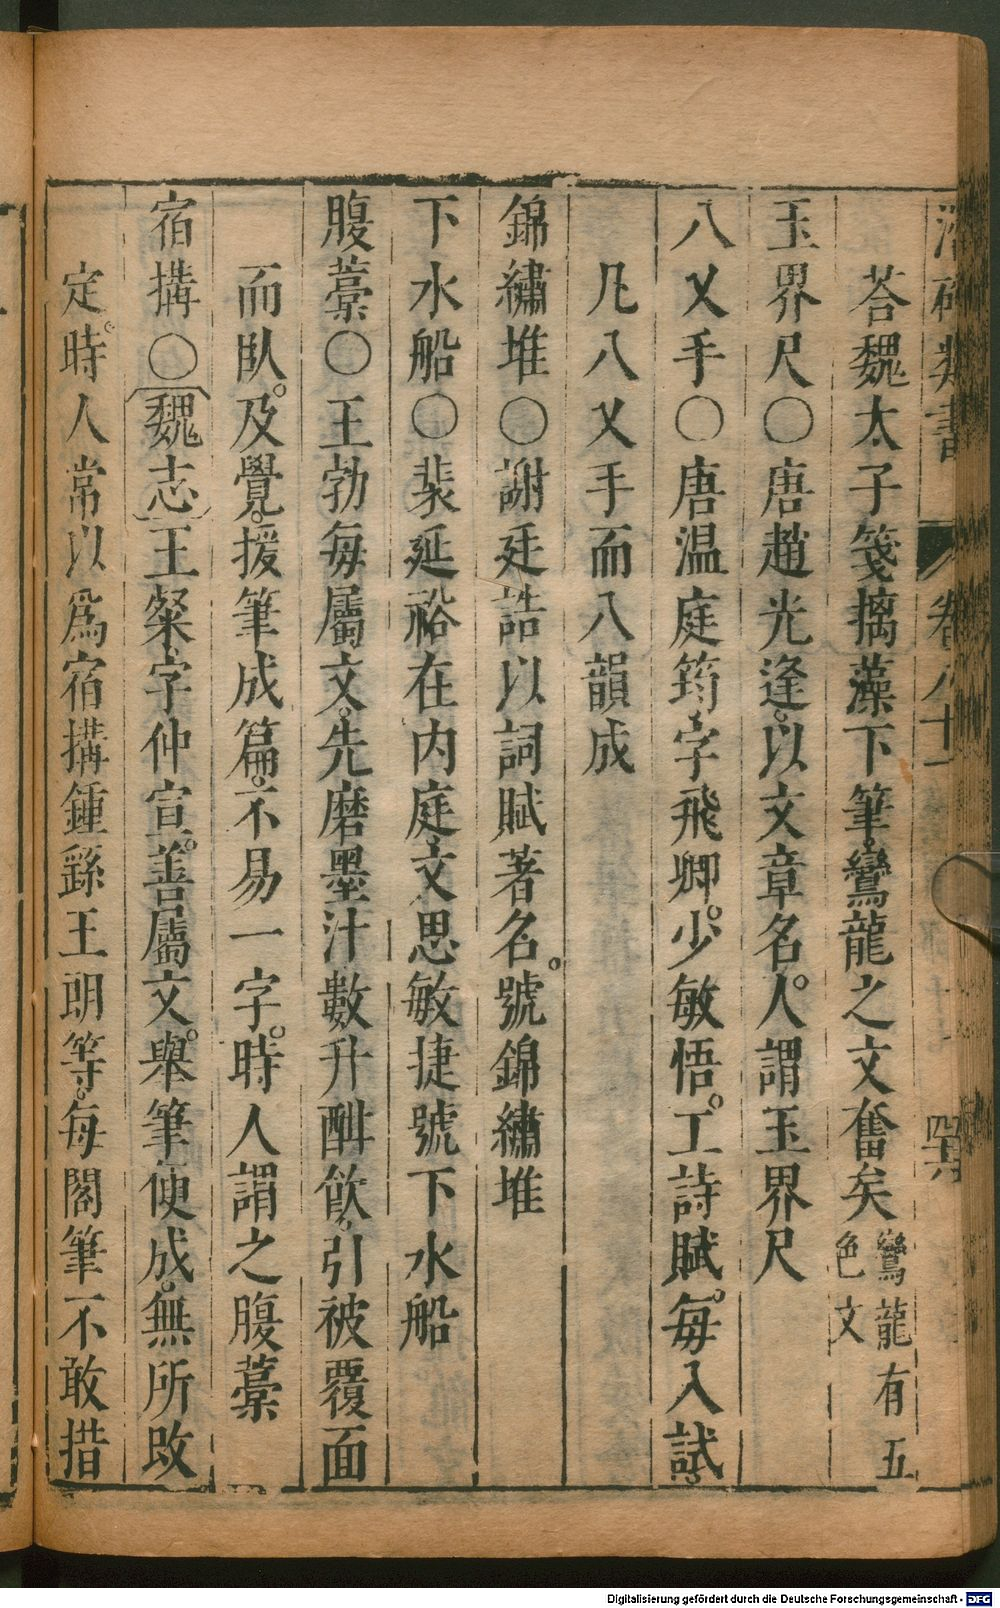 荅魏太子箋摛藻下筆鸞龍之文奮矣鸞龍有五色文
玉界尺○唐趙光逢以文章名人謂玉界尺
八乂手○唐温庭筠字飛卿少敏悟工詩賦每入試
凡八乂手而八韻成
錦繡堆○謝廷誥以詞賦著名號錦繡堆
下水船○裴延裕在内庭文思敏捷號下水船
腹藁○王勃每屬文先磨墨汁數升酣飲引被覆面
而臥及覺援筆成篇不易一字時人謂之腹藁
宿搆○魏志王粲字仲宣善屬文舉筆便成無所改
定時人常以爲宿搆鍾繇王朗等每閣筆不敢措
類書 卷八十一
四十六
Digitalisierung gefördert durch die Deutsche Forschungsgemeinschaft - DFG